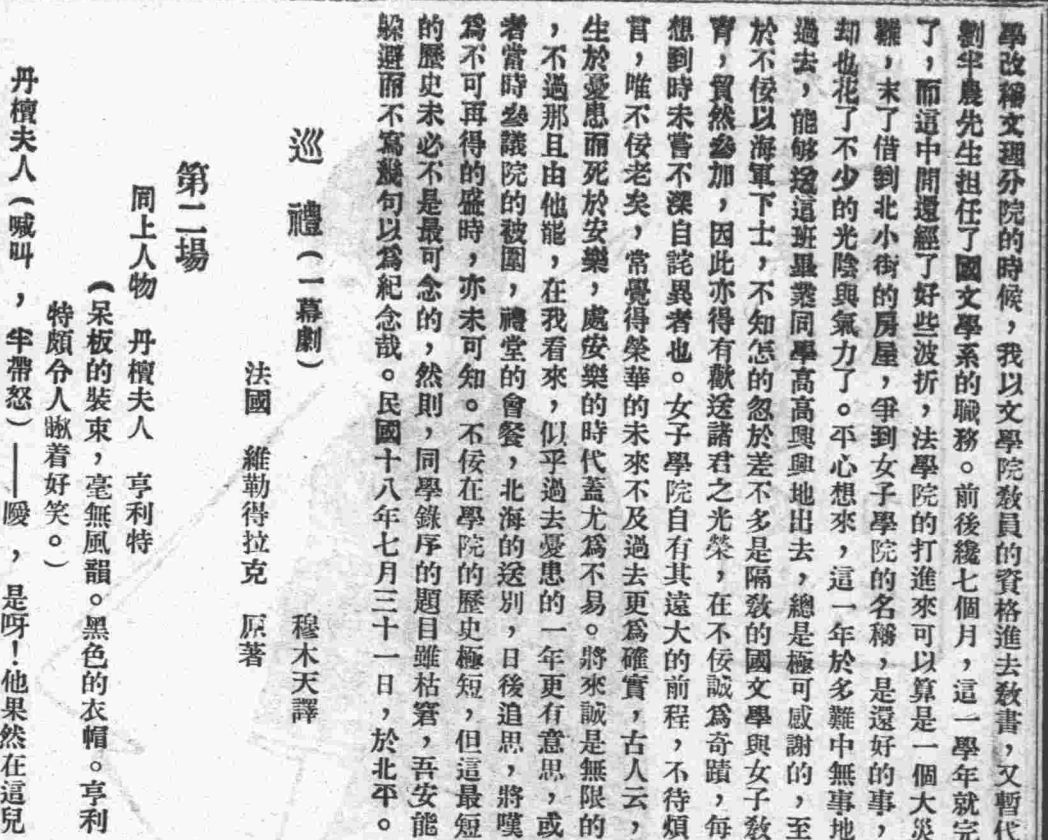 學改稱文理分院的時候，我以文學院教員的資格進去教書，又暫代
劉半農先生担任了國文學系的職務。前後纔七個月，這一學年就完
了，而這中間還經了好些波折，法學院的打進來可以算是一個大災
難，末了借到北小街的房屋，爭到女子學院的名稱，是還好的事，
却也花了不少的光陰與氣力了。平心想來，這一年於多難中無事地
過去，能够送這班畢業同學高高興興地出去，總是極可感謝的，至
於不佞以海軍下士，不知怎的忽於差不多是隔教的國文學與女子教
育，貿然參加，因此亦得有歡送諸君之光榮，在不佞誠爲奇蹟，每
想到時未嘗不深自詫異者也。女子學院自有其遠大的前程，不待煩
言，唯不佞老矣，常覺得榮華的未來不及過去更爲確實，古人云，
生於憂患而死於安樂，處安樂的時代蓋尤爲不易。將來誠是無限的
，不過那且由他罷，在我看來，似乎過去憂患的一年更有意思，或
者當時參議院的被圍，禮堂的會餐，北海的送別，日後追思，將嘆
爲不可再得的盛時，亦未可知。不佞在學院的歷史極短，但這最短
的歷史未必不是最可念的，然則，同學錄序的題目雖枯窘，吾安能
躲避而不寫幾句以爲紀念哉。民國十八年七月三十一日，於北平。
巡禮（一幕劇）
穆木天譯
法國　維勒得拉克　原著
第二場
同上人物　丹檀夫人　亨利特
（呆板的裝束，毫無風韻。黑色的衣帽。亨利
特頗令人瞅着好笑。）
丹檀夫人（喊叫，半帶怒）——噯，是呀！他果然在這兒